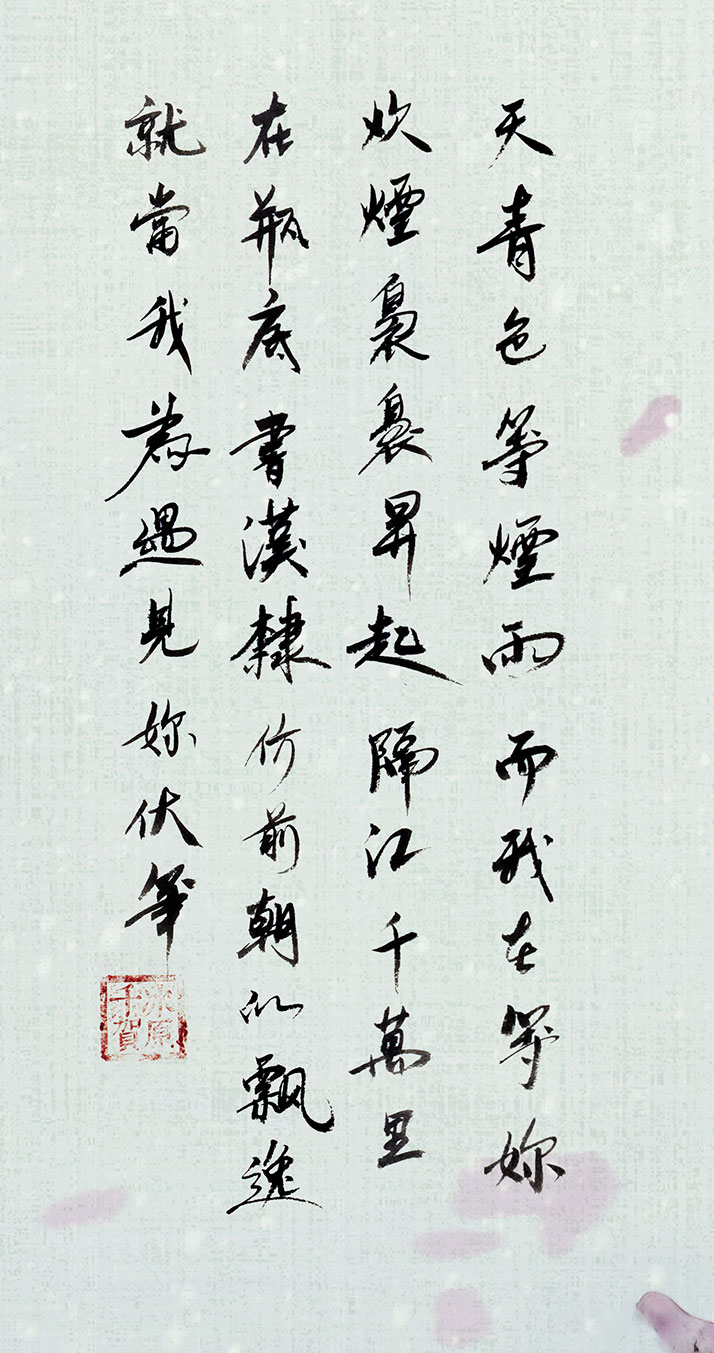 天青色等煙雨而我在等妳
炊煙裊裊昇起隔江千萬里
在瓶底書漢隸仿前朝的飄逸
就當我為遇見妳伏筆
米原千賀